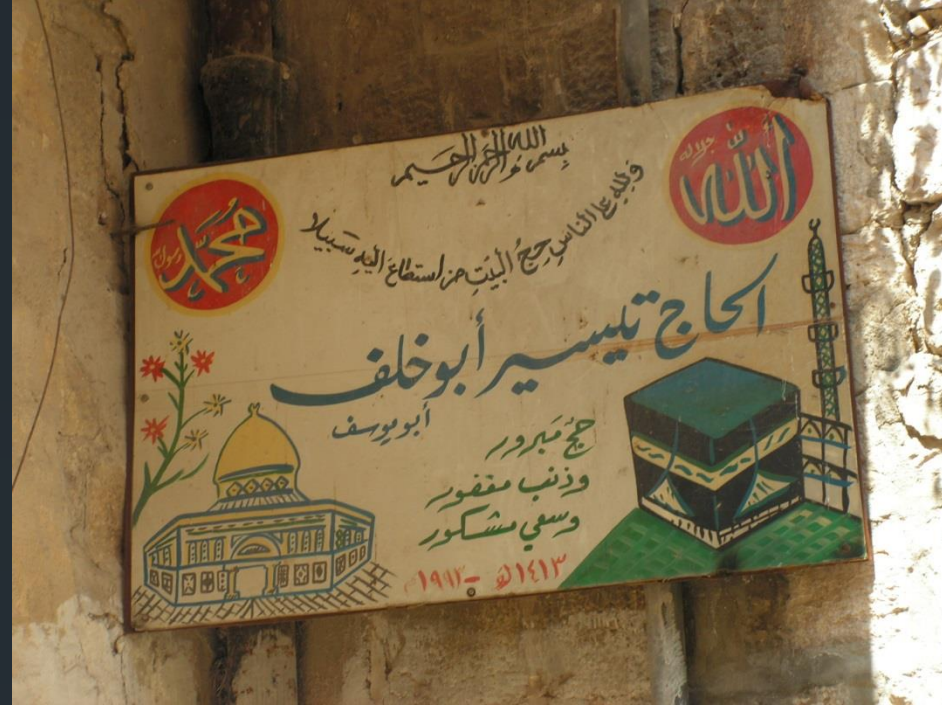 بسم الله الرحمن الرحيم
الله جلاله
محمد رسول
ولله على الناس حج البيت من استطاع اليه سبيلا
الحاج تيسير أبو خلف
أبو يوسف
حج مبرور
وذنب مغفور
وسعي مشكور
١٤١٣هـ - ١٩٩٣م